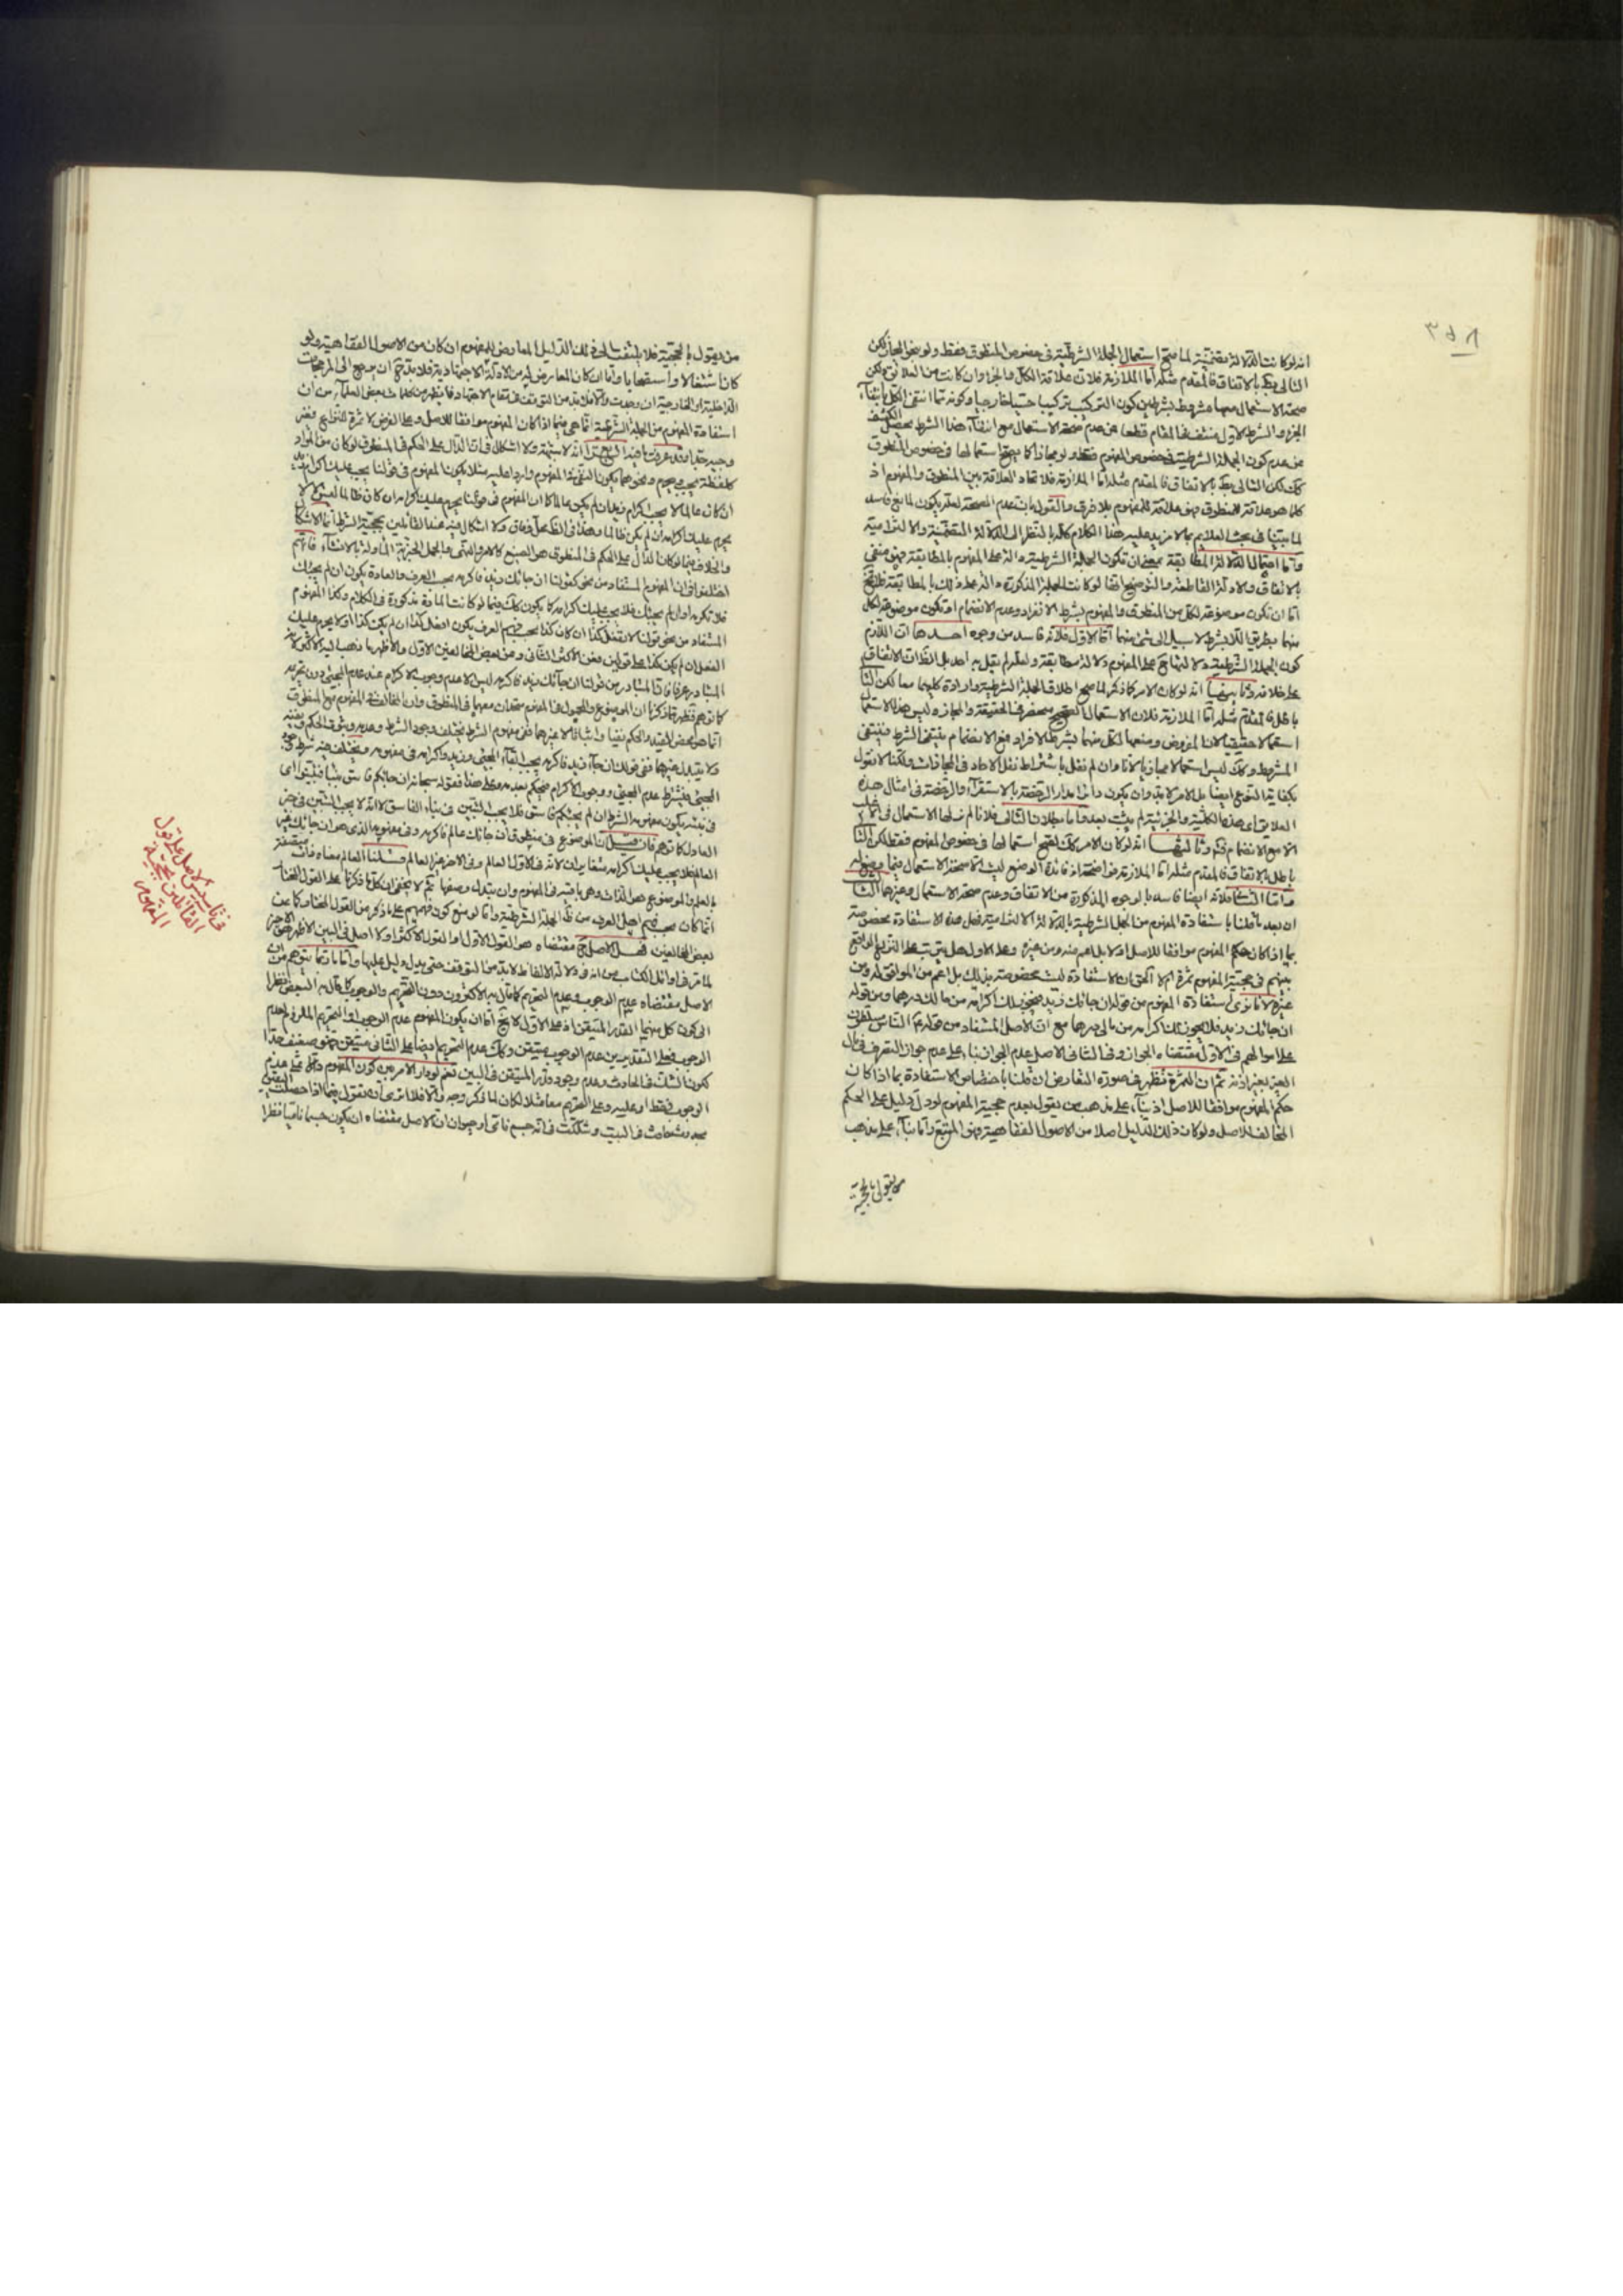 انه لو كانت الدلالة تضمنية لما صح استعمال الجملة الشرطية في خصوص المنطوق فقط ولو بنحو المجاز لكن
التالي بط بالاتفاق فالمقدم مثله اما الملازمة فلان علاقة الكل والجزء وان كانت من العلائق ولكن
صحة الاستعمال معها مشروط بشرطين كون التركيب تركيبا حقيقيا خارجيا وكونه مما انتفى الكل بانتفاء
الجزء والشرط الاول منتف في المقام قطعا فمن عدم صحة الاستعمال مع انتفاء هذا الشرط يحصل الكشف
عن عدم كون الجملة الشرطية في خصوص المفهوم فقط ولو مجازا كما يصح استعمالها في خصوص المنطوق
كك لكن التالي بط بالاتفاق فالمقدم مثله اما الملازمة فلاتحاد العلاقة بين المنطوق والمفهوم اذ
كلما هو علاقة للمنطوق فهو علاقة للمفهوم بلا فرق والقول بان عدم الصحة لعله يكون لمانع فاسد
لما بينا في بحث العلايم بما لا مزيد عليه هذا الكلام كله بالنظر الى الدلالة التضمنية والالتزامية
واما احتمال الدلالة المطابقة بمعنى ان تكون الجملة الشرطية دالة على المفهوم بالمطابقة فهو منفي
بالاتفاق والادلة القاطعة والتوضيح انها لو كانت الجملة المذكورة دالة على ذلك بالمطابقة فلا يخ
اما ان تكون موضوعة لكل من المنطوق والمفهوم بشرط الانفراد وعدم الانضمام او تكون موضوعة لكل
منهما بطريق اللابشرط لا سبيل الى شيء منهما اما الاول فلانه فاسد من وجوه احدها ان اللازم
كون الجملة الشرطية دلالتها على المفهوم دلالة مطابقة ولعله لم يقل به احد بل الظاهر الاتفاق
على خلافه وثانيها انه لو كان الامر كما ذكر لما صح اطلاق الجملة الشرطية وارادة كليهما معا لكن التا
باطل فالمقدم مثله اما الملازمة فلان الاستعمال الصحيح منحصر في الحقيقة والمجاز وليس هذا الاستعما
استعمالا حقيقيا لان المفروض وضعها لكل منهما بشرط الانفراد مع الانضمام ينتفي الشرط فينتفي
المشروط وكك ليس استعمالا مجازيا لانا وان لم نقل باشتراط نقل الاحاد في المجازات ولكنا لا نقول
بكفاية النوع ايضا بل الامر لابد وان يكون دائرا مدار الرخصة بالاستقراء والرخصة في امثال هذه
العلايق اي هذه الكلية والجزئية لم يثبت بعد
الا مع الانضمام فتدبر وثالثها انه لو كان الامر كك لصح استعمالها في خصوص المفهوم فقط لكن التا
باطل بالاتفاق فالمقدم مثله اما الملازمة فواضحة اذ فائدة الوضع ليست الا صحة الاستعمال فيما وضع له
واما الثاني فلانه ايضا فاسد بالوجوه المذكورة من الاتفاق وعدم صحة الاستعمال وغيرهما الثالث
ان بعد ما قلنا باستفادة المفهوم من الجمل الشرطية بالدلالة الالتزامية فهل هذه الاستفادة مخصوصة
بما اذا كان حكم المفهوم موافقا للاصل او لا بل اعم منه ومن غيره وعلى الاول هل يترتب على النزاع الواقع
بينهم في حجية المفهوم ثمرة ام لا الحق ان الاستفادة ليست مخصوصة بذلك بل اعم من الموافق له ومن
غيره الا ترى استفادة المفهوم من قوله ان جائك زيد فيجوز لك اكرامه من مالك درهما ومن قوله
ان جائك زيد فلا يجوز لك اكرامه من مالي درهما مع ان الاصل المستفاد من قوله ع الناس مسلطون
على اموالهم في الاول مقتضاه الجواز وفي الثاني الاصل عدم الجواز بناء على عدم جواز التصرف في مال
الغير بغير اذنه ثم ان الثمرة تظهر في صورة التعارض ان قلنا باختصاص الاستفادة بما اذا كان
حكم المفهوم موافقا للاصل اذ بناء على مذهب من يقول بعدم حجية المفهوم لو دل دليل على الحكم
المخالف للاصل ولو كان ذلك الدليل اصلا من الاصول الفقاهية فهو المتبع واما بناء على مذهب
من يقول بالحجية
من يقول بالحجية فلا يلتفت الى ذلك الدليل المعارض للمفهوم ان كان من الاصول الفقاهية ولو
كان اشتغالا واستصحابا واما ان كان المعارض له من الادلة الاجتهادية فلابد ح ان يرجع الى المرجحات
الداخلية او الخارجية ان وجدت والا فلابد من التوقف في مقام الاجتهاد فما يظهر من كلمات بعض العلماء من ان
استفادة المفهوم من الجملة الشرطية انما هي فيما اذا كان المفهوم موافقا للاصل وعلى الفرض لا ثمرة للنزاع فغير
وجيه جدا وقد عرفت ما فيه الرابع اعلم انه لا شبهة ولا اشكال في ان الدال على الحكم في المنطوق لو كان من المواد
كلفظة يجب ويحرم ونحوهما يكون النفي في المفهوم واردا عليه مثلا يكون المفهوم في قولنا يجب عليك اكرام زيد
ان كان عالما لا يجب اكرام زيد ان لم يكن عالما كما ان المفهوم في قولنا يحرم عليك اكرامه ان كان ظالما ليس الا لا
يحرم عليك اكرامه ان لم يكن ظالما وهذا في الظ محل وفاق ولا اشكال فيه عند القائلين بحجية الشرط انما الاشكال
والخلاف فيما لو كان الدال على الحكم في المنطوق هو الصيغ كالامر والنهي والجمل الخبرية المأولة بالانشاء فانهم
اختلفوا في ان المفهوم المستفاد من نحو كقولنا ان جائك زيد فاكرمه بحسب العرف والعادة يكون ان لم يجئك
فلا تكرمه او ان لم يجئك فلا يجب عليك اكرامه كما يكون كك فيما لو كانت المادة مذكورة في الكلام وكذا المفهوم
المستفاد من نحو قولنا لا تفعل كذا ان كان كذا بحسب فهم العرف يكون افعل كذا ان لم يكن كذا او لا يحرم عليك
الفعل ان لم يكن كذا على قولين فعن الاكثر الثاني وعن بعض المخالفين الاول والاظهر ما ذهب اليه الاكثر لانه
المتبادر عرفا فان المتبادر من قولنا ان جائك زيد فاكرمه ليس الا عدم وجوب الاكرام عند عدم المجيء دون تحريمه
كما توهم فظهر مما ذكرنا ان الموضوع والمحمول في المفهوم متحدان معهما في المنطوق وان المخالفة المفهوم مع المنطوق
انما هو بمحض القيد والحكم نفيا واثباتا لا غيرهما ففي مفهوم الشرط يختلف وجود الشرط وعدمه وثبوت الحكم ونفيه
ولا يتبدل غيرهما ففي قولك ان جاء زيد فاكرمه يجب ابقاء المجيء وزيد واكرامه في مفهومه ويختلف فيه شرط حق
المجيء بشرط عدم المجيء ووجوب الاكرام
العادل كما توهم فان قيل ان الموضوع في منطوق ان جائك عالم فاكرمه وفي مفهومه الذي هو ان جائك غير
العالم فلا يجب عليك اكرامه متغايران لانه في الاول العالم وفي الاخر غير العالم قلنا العالم معناه ذات متصفة
بالعلم والموضوع هو الذات وهي باقية في المفهوم وان يتبدل وصفها ثم لا يخفى ان كل ما ذكرنا على القول المختار
انما كان بحسب فهم اهل العرف من تلك الجملة الشرطية واما لو منع كون فهمهم على ما ذكر من القول المختار كما عن
بعض المخالفين فهل الاصل ح مقتضاه هو القول الاول او القول الاكثر او لا اصل في البين الاظهر هو الاخير
لما مر في اوائل الكتاب من انه في دلالة الالفاظ لابد من التوقف حتى يدل دليل عليها واما ما ربما يتوهم من ان
الاصل مقتضاه عدم الوجوب وعدم التحريم كما قال به الاكثرون دون التحريم والوجوب كما قال به البعض نظرا
الى كون كل منهما القدر المتيقن اذ على الاول لا يخ اما ان يكون المفهوم عدم الوجوب او التحريم الملزوم لعدم
الوجوب فعلى التقديرين عدم الوجوب متيقن وكك عدم التحريم ايضا على الثاني متيقن فهو ضعيف جدا
لكون الشك في الحادث وعدم وجود قدر المتيقن في البين نعم لو دار الامر بين كون المفهوم دالا على عدم
الوجوب فقط او عليه وعلى التحريم معا مثلا لكان لما ذكر وجه والا فلا الا ترى انه يقول فيما اذا حصلت اليقين
بوجود شيء حادث في البيت وشككت في انه جسم نامي او حيوان ان الاصل مقتضاه ان يكون جسما ناميا نظرا
في تاسيس الاصل على قول
القائلين بحجية
المفهوم